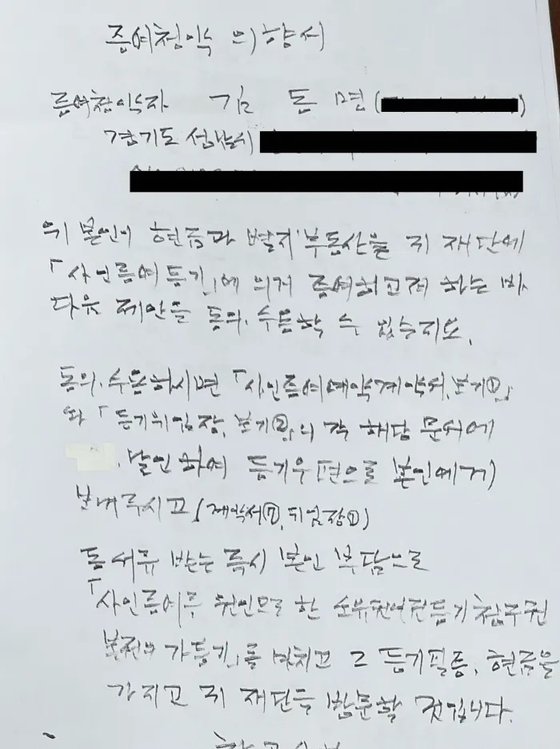 증여청약 의향서
증여청약자 김 동 면(
경기도 성남시
위 본인이 현금과 별지 부동산을 귀 재단에
「사인증여등기」에 의거 증여하고저 하는 바
다음 제안을 동의·수용할 수 있는지요.
동의·수용하시면 「사인증여예약계약서, 보기①」
와 「등기위임장, 보기②」의 각 해당 문서에
날인하여 등기우편으로 본인에게
보내주시고 (계약서②, 위임장①)
동 서류 받는 즉시 본인 부담으로
「사인증여를 원인으로 한 소유권이전등기청구권
보전의 가등기」를 마치고 그 등기필증, 현금을
가지고 귀 재단을 방문할 것입니다.